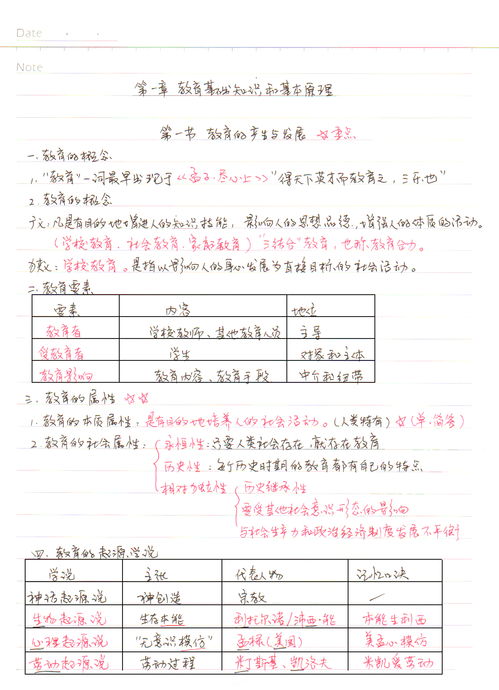 Date
Note
第一章 教育基础知识和基本原理
第一节 教育的产生与发展 ☆重点
一.教育的概念
1."教育"一词最早出现于<<孟子·尽心上>>"得天下英才而教育之,三乐也"
2.教育的概念
广义:凡是有目的地增进人的知识技能,影响人的思想品德,增强人的体质的活动。
(学校教育.社会教育.家庭教育)"三结合"教育,也称教育合力。
狭义:学校教育。是指以影响人的身心发展为直接目标的社会活动。
二.教育要素
要素 内容 地位
教育者 学校教师、其他教育人员 主导
受教育者 学生 对象和主体
教育影响 教育内容、教育手段 中介和纽带
三.教育的属性 ☆☆
1.教育的本质属性:是有目的地培养人的社会活动。(人类特有)☆(单.简答)
2.教育的社会属性:永恒性:只要人类社会存在,就存在教育
历史性:每个历史时期的教育都有自己的特点
相对独立性 历史继承性
要受其他社会意识形态的影响
与社会生产力和政治经济制度发展不平衡
四.教育的起源学说
学说 主张 代表人物 记忆口诀
神话起源说 神创造 宗教 /
生物起源说 生存本能 利托尔诺/沛西·能 本能生利西
心理起源说 "无意识模仿" 孟禄(美国) 美孟心模仿
劳动起源说 劳动过程 米丁斯基、凯洛夫 米凯爱劳动